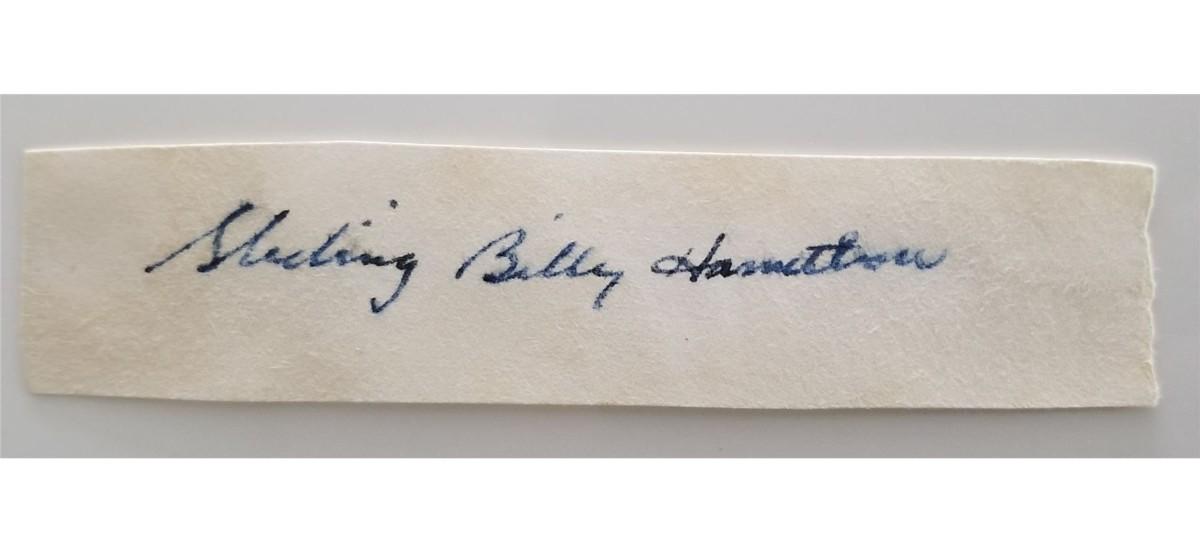 Sliding Billy Hamilton